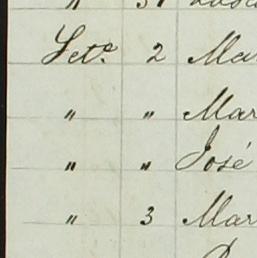 " 31
Sete. 2 Mar
" " Mar
" " José
" 3 Mar